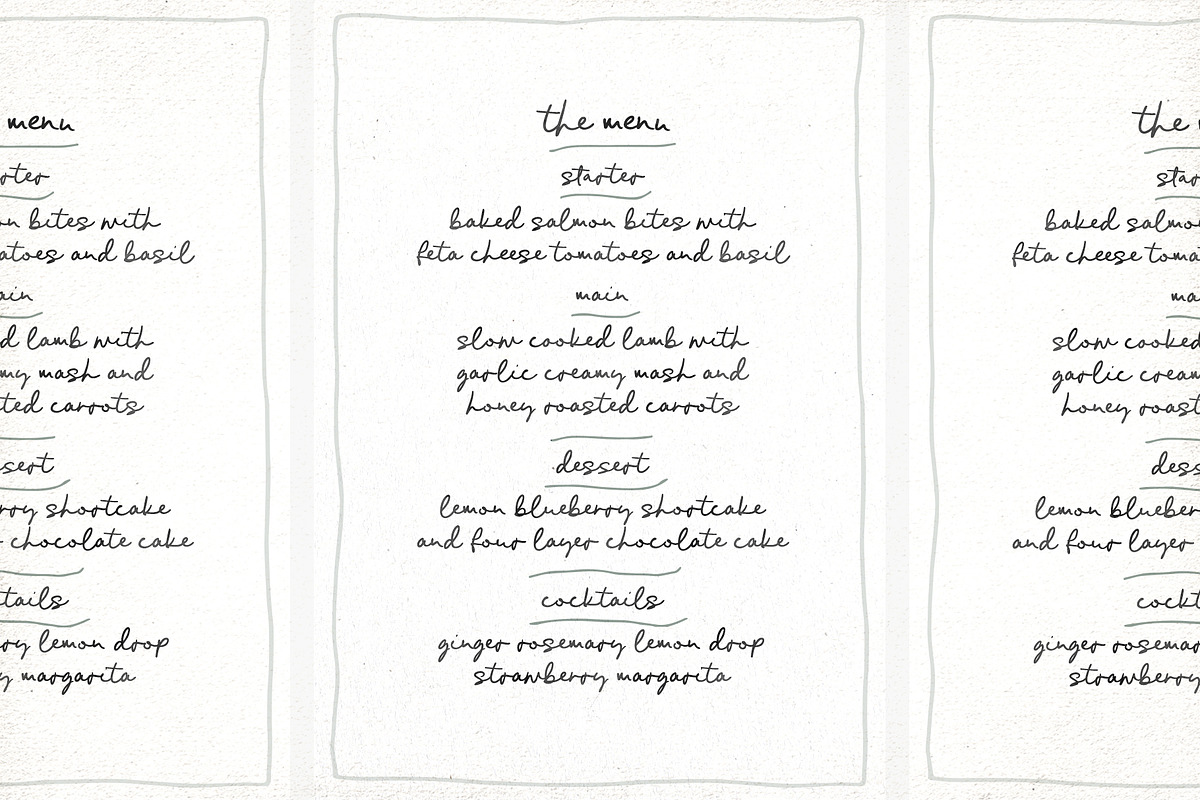 menu
rter
on bites with
atoes and basil
ain
d lamb with
my mash and
ted carrots
sert
rry shortcake
chocolate cake
tails
ry lemon drop
y margarita
the menu
starter
baked salmon bites with
feta cheese tomatoes and basil
main
slow cooked lamb with
garlic creamy mash and
honey roasted carrots
dessert
lemon blueberry shortcake
and four layer chocolate cake
cocktails
ginger rosemary lemon drop
strawberry margarita
the
star
baked salmo
feta cheese toma
ma
slow cooked
garlic cream
honey roast
dess
lemon blueber
and four layer
cockt
ginger rosemar
strawberry